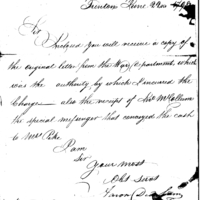 Trenton June 22nd
Sir
Enclosed you will receive a copy of
the original letter from the War Department, which
was the authority by which I incurred the
Charge also the receipt of McCollum
the special messenger that conveyed the cash
to Mr Pike
I am
Sir
Your most
Obt Servt